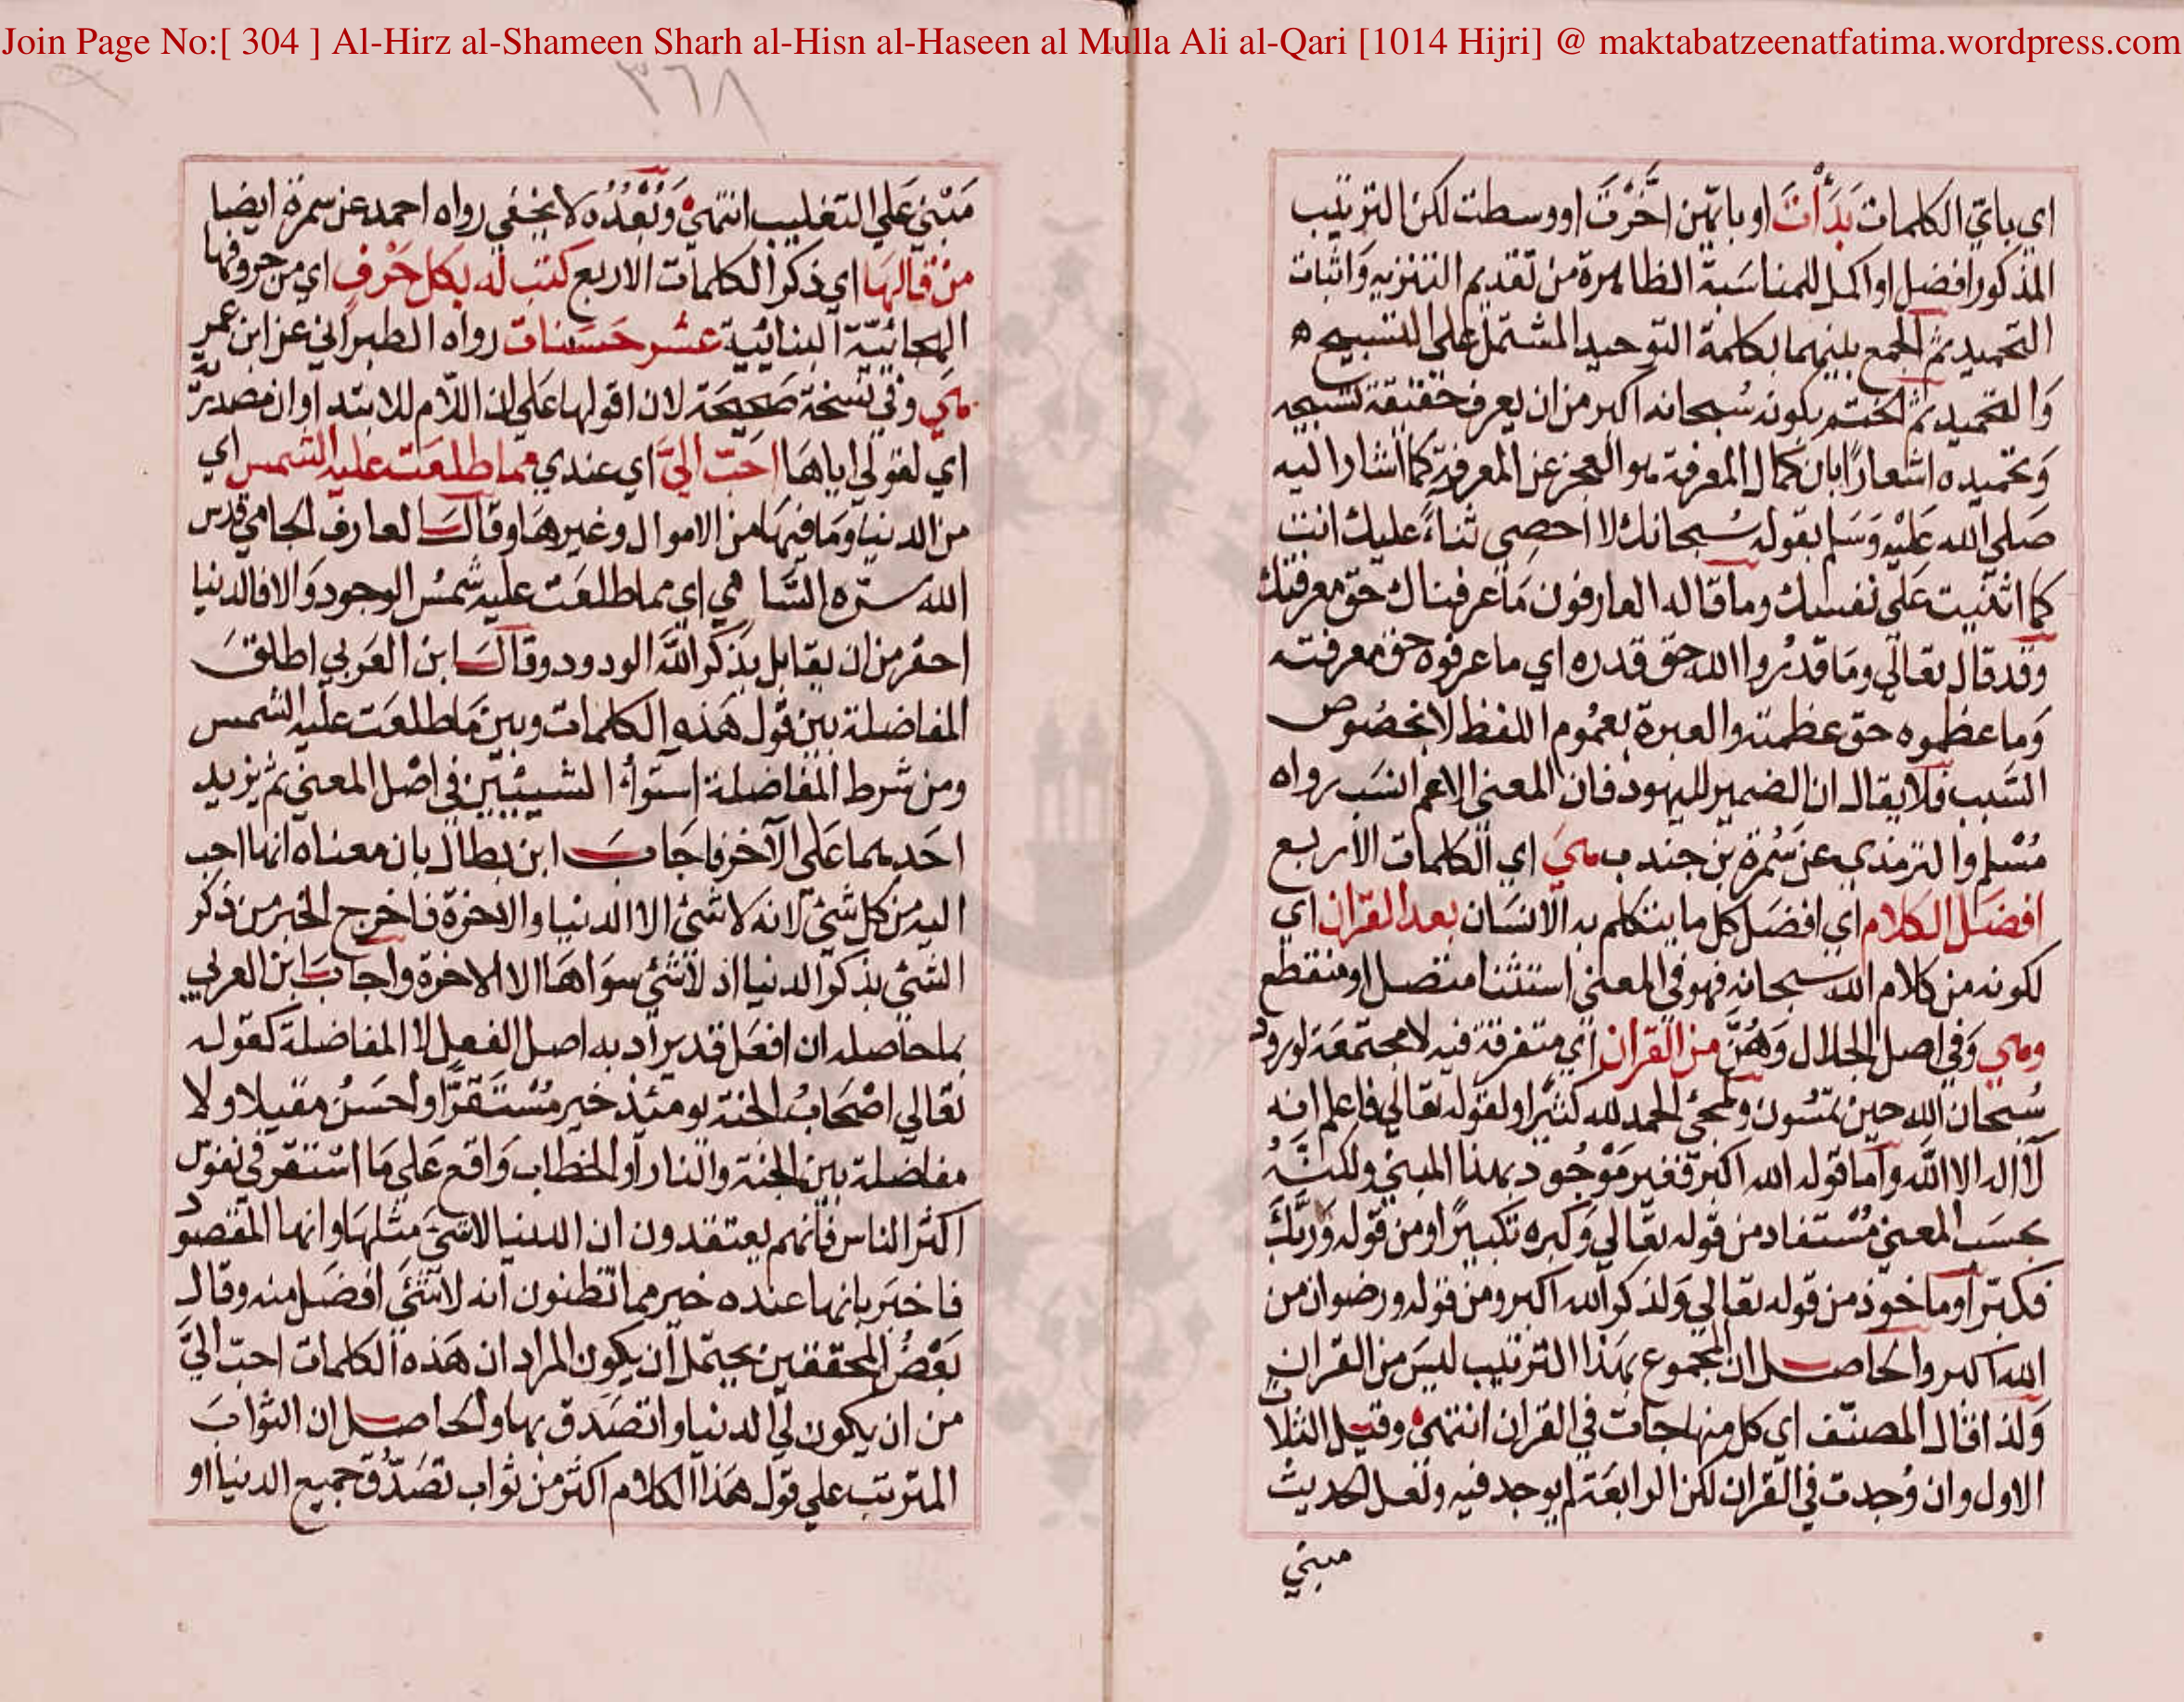 Join Page No:[ 304 ] Al-Hirz al-Shameen Sharh al-Hisn al-Haseen al Mulla Ali al-Qari [1014 Hijri] @ maktabatzeenatfatima.wordpress.com
اي باي الكلمات بَدَأْتَ او بايّهن اخَّرْتَ او وسطت لكن الترتيب
المذكور افضل او اكمل للمناسَبة الظاهرة من تقديم التنزيه وَاثبات
التحميد ثم الجمع بينهما بكلمة التوحيد المشتمل علي التسبيح
وَالتحميد ثم الختم بكونه سُبحانه اكبر من ان يعرف حقيقة تسبيحه
وَتحميده اشعارًا بان كمال المعرفة هو العجز عن المعرفة كما اشار اليه
صَلي الله عَلَيْه وَسَلم بقوله سُبحانك لا احصي ثناءً عليك انت
كما اثنيت عَلي نفسك وما قاله العارفون مَا عرفناك حقّ معرفتك
وقد قال تعالي ومَا قدرُوا الله حقّ قدره اي ما عرفوه حق معرفته
وَما عظموه حق عظمته والعبرة بعمُوم اللفظ لا بخصُوص
السَّبب فلا يقال ان الضمير لليهود فان المعني الاعم انسَب رواه
مُسْلم والترمذي عن سَمُرة بن جندب هيَ اي الكلمات الاربع
افضَل الكلام اي افضَل كل ما يتكلم به الانسَان بعد القران اي
لكونه من كلام الله سبحانه فهو في المعني استثنا متصل او منقطع
وهي وَفي اصل الجلال وَهُنَّ من القران اي متفرقة فيه لا مجتمعَة لورود
سُبحان الله حين تمسُون ولمجئ الحمد لله كثيرًا ولقوله تعالي فاعلم انه
لا اله الا الله وَاما قوله الله اكبر فغير مَوْجُود بهذا المبني ولكنَّهُ
بحسَب المعني مُسْتفاد من قوله تعَالي وَكبره تكبيرًا ومن قوله وَرَبَّكَ
فكبّر او ماخوذ من قوله تعَالي وَلذكر الله اكبر ومن قوله ورضوان من
الله اكبر والحاصل ان المجموع بهَذا الترتيب ليسَ من القران
وَلذا قال المصنّف اي كل منها جاءت في القران انتهيٰ وقيل الثلاث
الاول وان وُجدت في القران لكن الرابعَة لم يوجد فيه ولعل الحديث
مبني
٣٦٨
مَبْنيّ عَلي التغليب انتهيٰ وَبُعْدُه لا يخفي رواه احمد عن سمرة ايضا
مَنْ قالهَا اي ذكر الكلمات الاربع كتب له بكل حَرْفٍ اي من حروفها
الهجائيّة البنائيّة عشر حَسَنات رواه الطبراني عن ابن عمر
هي وفي نسخة صَحيحَة لان اقولها عَلي ان اللّام للابتدا وان مصدريّة
اي لقولي اياهَا احَبّ اليَّ اي عندي مما طلعَت عليه الشمس اي
من الدنيا وَمَا فيهَا من الاموال وغيرهَا وقال العارف الجامي قدس
الله سرّه السَّامي اي مما طلعَت عليه شمسُ الوجود وَالا فالدنيا
احقر من ان يقابل بذكر اللّه الودود وقال ابن العَربي اطلق
المفاضلة بين قول هَذه الكلمات وبين مَا طلعَت عليه الشمس
ومن شرط المفاضلة استوآء الشيئين في اصْل المعني ثم يزيد
احَدهما عَلي الآخر فاجَابَ ابن بطال بان معناه انها احب
اليه من كل شئ لانه لا شئ الا الدنيا والاخرة فاخرج الخبر من ذكر
الشئ بذكر الدنيا اذ لا شئ سوَاهَا الا الاخرة واجابَ ابن العربي
بما حاصله ان افعَل قد يراد به اصل الفعل لا المفاضلة كقوله
تعَالي اصْحَابُ الجنة يومئذ خير مُسْتَقَرًّا واحسَنُ مقيلا ولا
مفاضلة بين الجنة والنار او الخطاب وَاقع عَلي مَا استقر في نفوس
اكثر الناس فانهم يعتقدون ان الدنيا لا شئ مثلهَا وانها المقصود
فاخبَر بانها عنده خير مما تظنون انه لا شئ افضَل منه وقال
بَعْضُ المحققين يحتمل ان يكون المراد ان هَذه الكلمات احبّ اليَّ
من ان يكون لي الدنيا واتصَدق بها والحاصل ان الثوابَ
المترتب علي قول هَذا الكلام اكثر من ثواب تصَدّق جميع الدنيا او